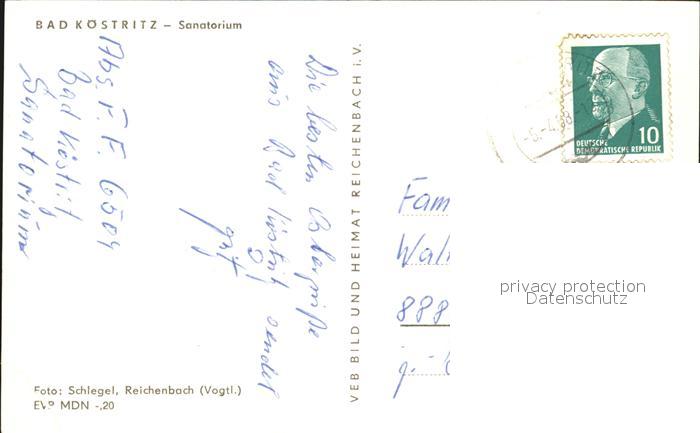 BAD KÖSTRITZ – Sanatorium
Abs. F. F. 6504
Bad Köstritz
Sanatorium
Die besten Ostergrüße
aus Bad Köstritz sendet
VEB BILD UND HEIMAT REICHENBACH i. V.
DEUTSCHE
DEMOKRATISCHE REPUBLIK
10
Fam
Wal
888
privacy protection
Datenschutz
Foto: Schlegel, Reichenbach (Vogtl.)
EVP MDN -,20